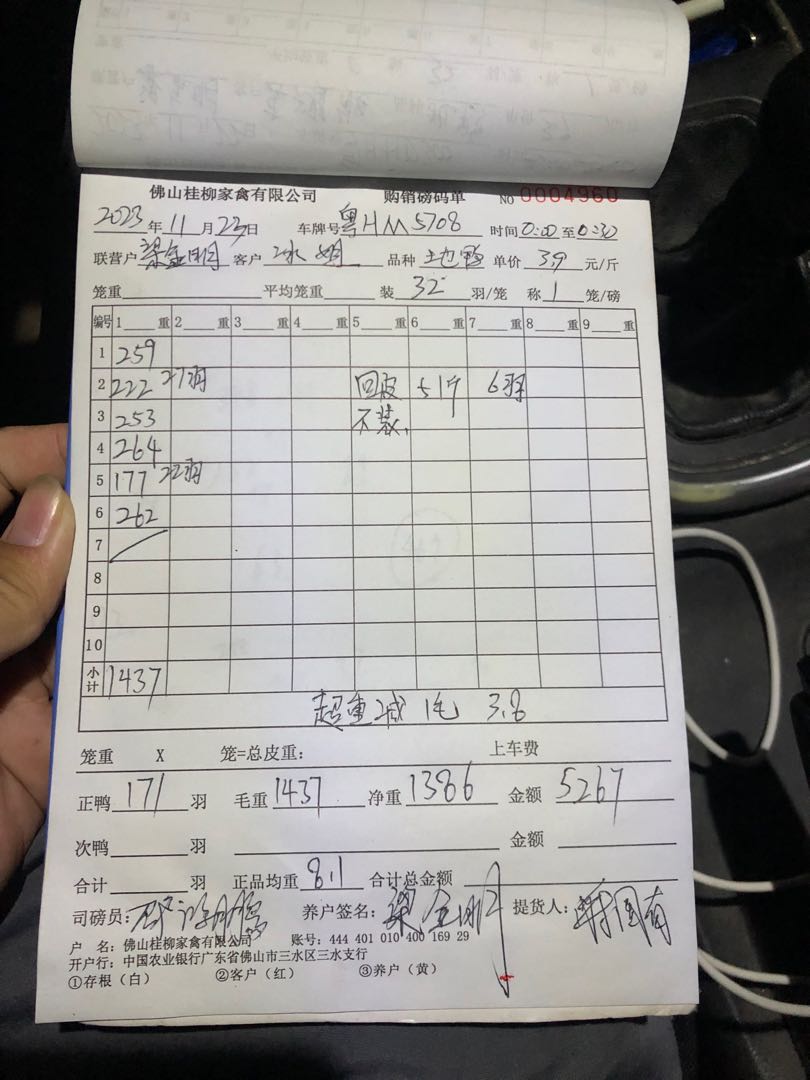 佛山桂柳家禽有限公司 购销磅码单 NO 0004960
2023年11月23日 车牌号粤HM5708 时间0:00至0:30
联营户梁金明 客户冰姐 品种土鸭 单价3.9元/斤
笼重 平均笼重 装32羽/笼 称1笼/磅
编号 1 重 2 重 3 重 4 重 5 重 6 重 7 重 8 重 9 重
1 259
2 222 27羽 回皮 51斤 6羽
3 253 不装
4 264
5 177 22羽
6 262
7
8
9
10
小计 1437
超重减1毛 3.8
笼重 X 笼=总皮重: 上车费
正鸭171羽 毛重1437 净重1386 金额5267
次鸭 羽 金额
合计 羽 正品均重8.1 合计总金额
司磅员: 养户签名:梁金明 提货人:
户 名:佛山桂柳家禽有限公司 账号:444 401 010 400 169 29
开户行:中国农业银行广东省佛山市三水区三水支行
①存根(白) ②客户(红) ③养户(黄)